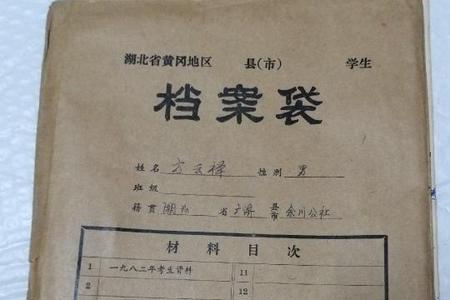 湖北省黄冈地区 县(市) 学生
档案袋
姓名 方 性别 男
班级
籍贯 湖北 省 广济 县市 余川公社
材料目次
1 一九八二年考生资料 11
2 12